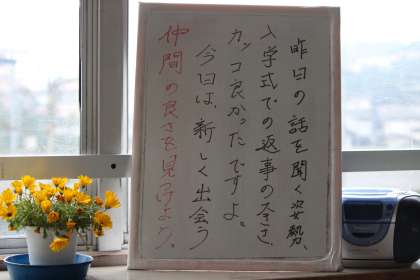 昨日の話を聞く姿勢、
入学式での返事の大きさ、
カッコ良かったですよ。
今日は、新しく出会う
仲間の良さを見つけよう。